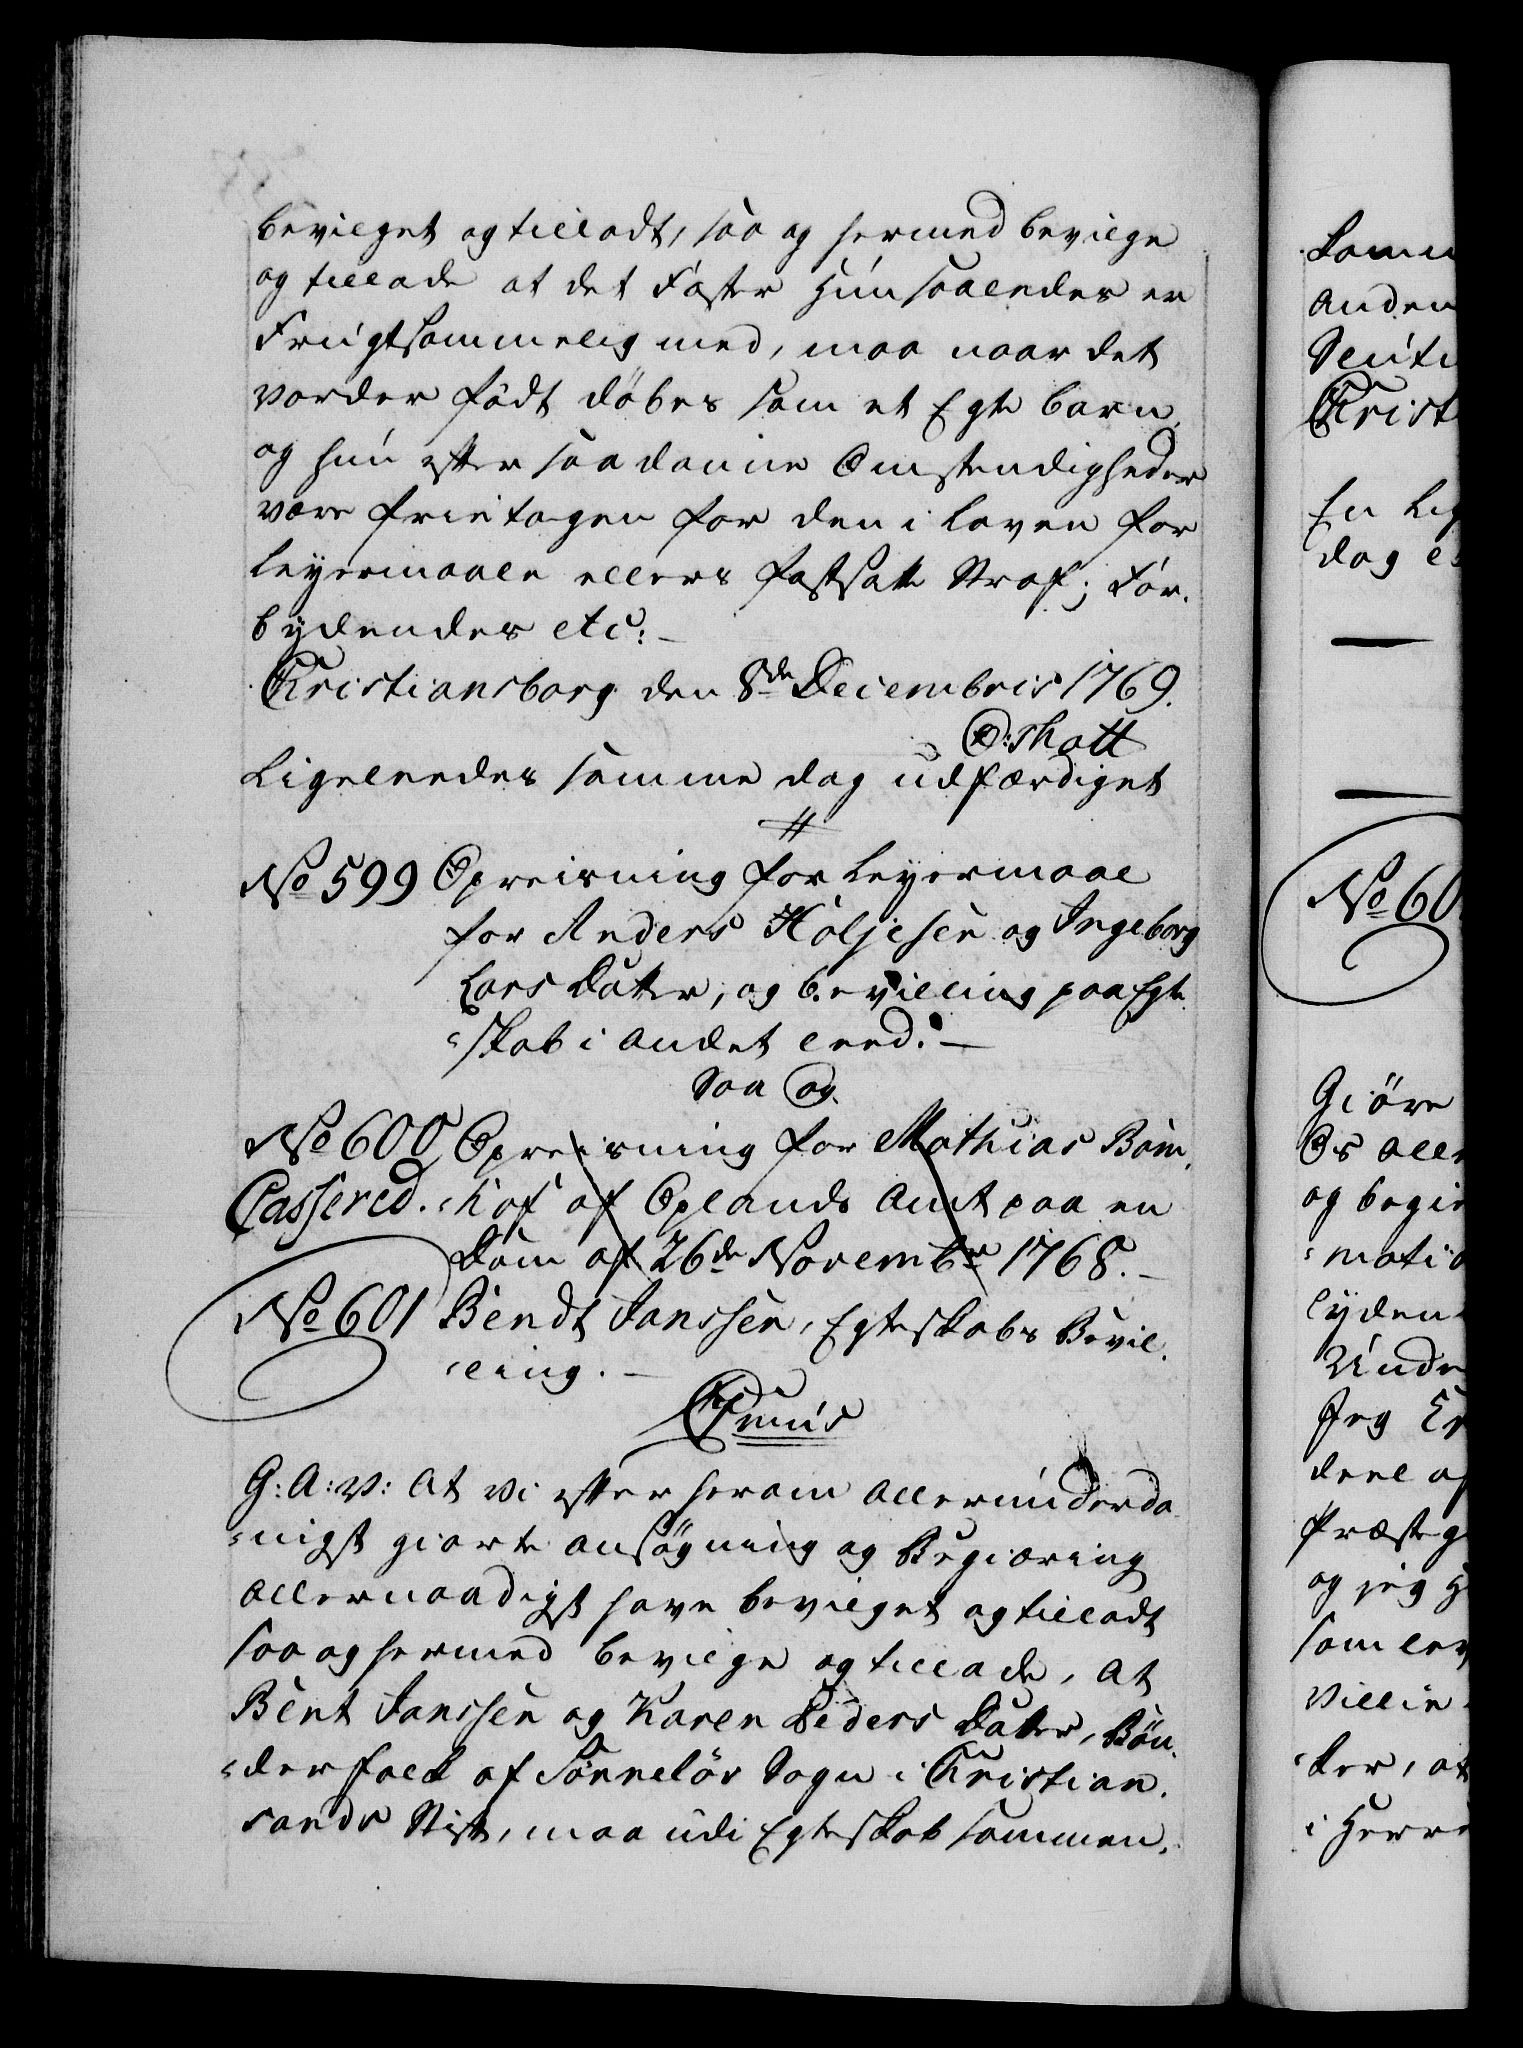 bevilget og tilladt, saa og hermed bevilge
og tillade at det Foster Hun saaledes er
Frugtsommelig med, maa naar det
vorder född döbes som et Egte barn,
og hun efter saadanne Omstendigheder
være frietagen for den i Loven for
Leyermaale ellers fastsatte Straf; For-
bydendes etc: –
Christiansborg den 8de Decembris 1769.
O: Thott
Ligeleedes samme dag udfærdiget
No 599 Opreisning for Leyermaal
for Anders Holjesen og Ingeborg
Lars Datter, og bevilling paa Egte-
skab i andet Leed. –
Saa og
No 600 Opreisning for Mathias Bom-
Cassered. -hof af Oplands Amt paa en
Dom af 26de Novembr 1768. –
No 601 Bendt Janssen, Egteskabs Bevil-
-ling. –
G: A: V: At Vi efter herom allerunderda-
-nigst giorte ansøgning og Begiæring
allernaadigst have bevilget og tilladt
saa og hermed bevilge og tillade, at
Bent Janssen og Karen Peders Datter, Bön-
-derfolk af Sønneløv Sogn i Christian-
sands Stift, maa udi Egteskab sammen-
Samm
anden
Christ
En Lig
dag
No 60
Giöre
Os all
og begi
-matio
lyden
Unde
Jeg
deel af
Præsteg
og jeg
som lev
Villi
-ker, at
i Herr